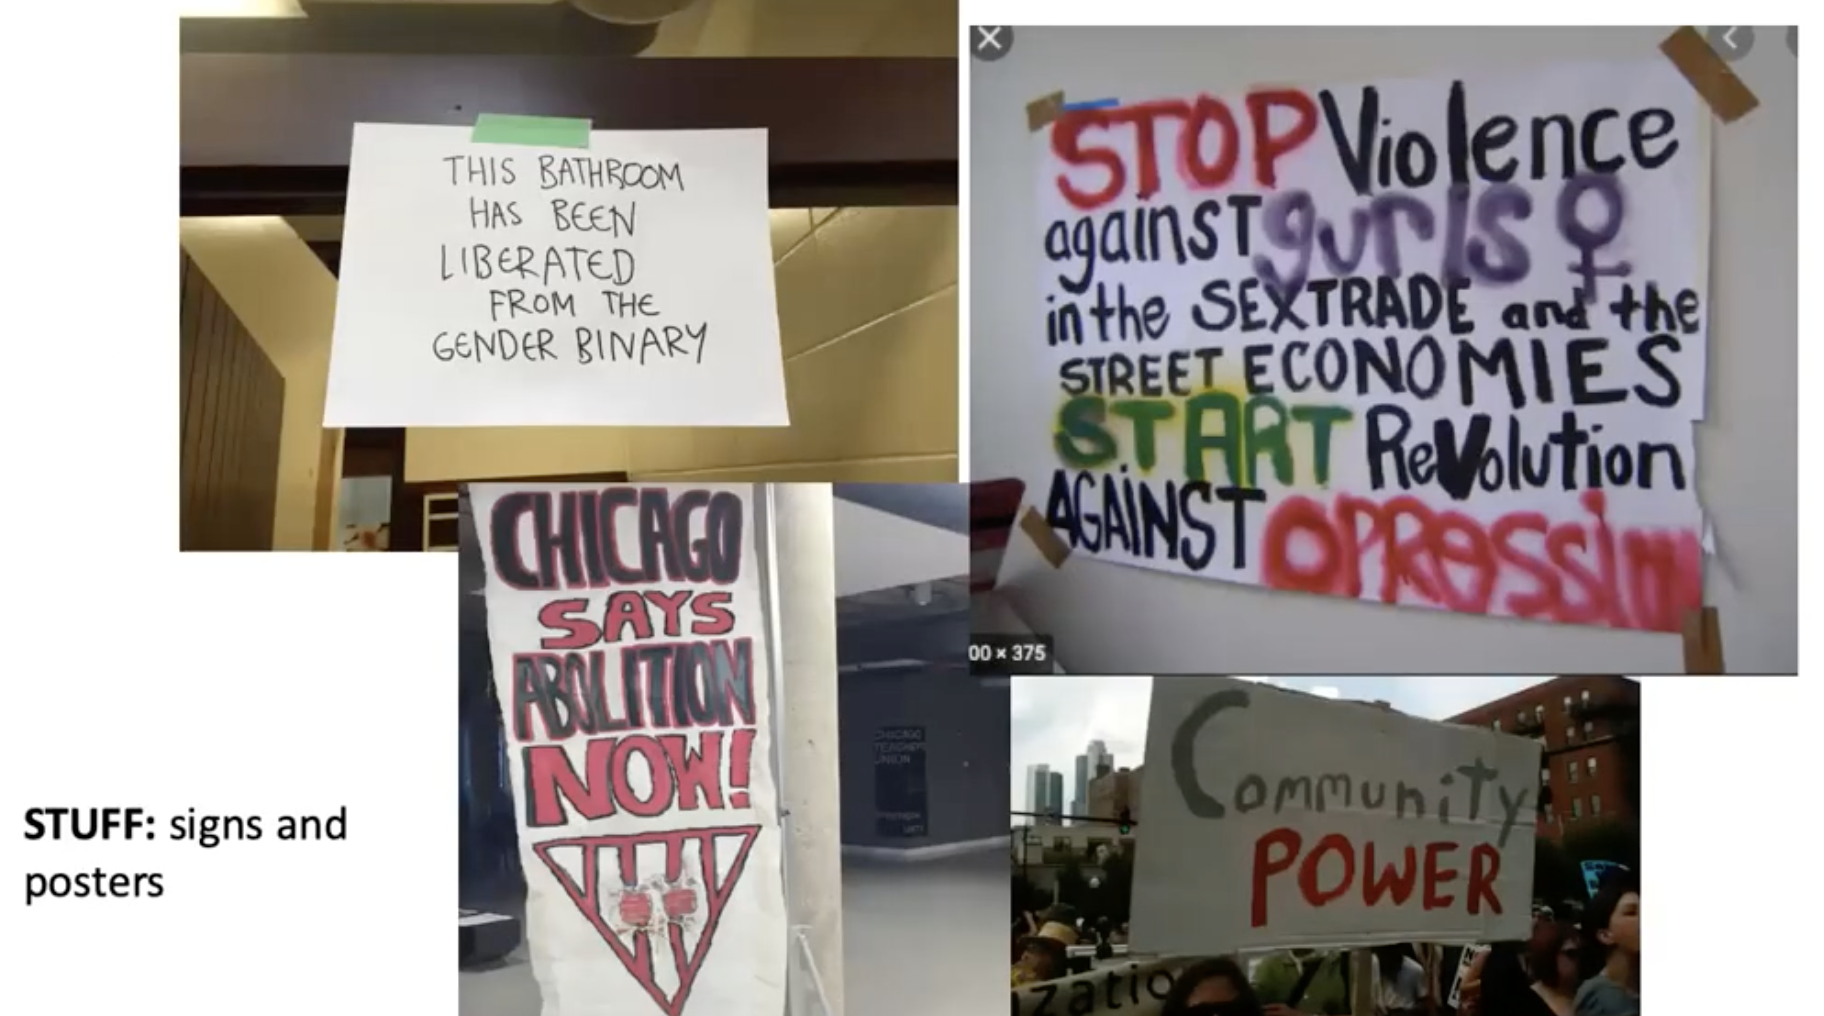 THIS BATHROOM
HAS BEEN
LIBERATED
FROM THE
GENDER BINARY
STOP Violence
against gurls
in the SEXTRADE and the
STREET ECONOMIES
START ReVolution
AGAiNST OPRESSiON
00 × 375
CHICAGO
SAYS
ABOLITION
NOW!
CHICAGO
TEACHERS
UNION
Community
POWER
zatio
STUFF: signs and
posters